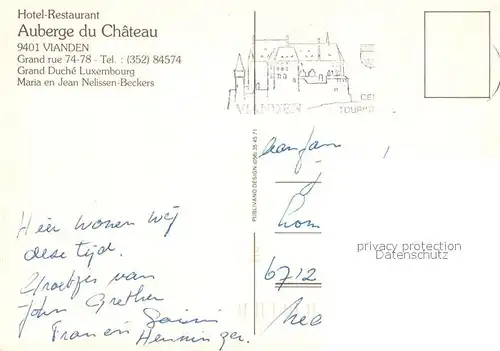 Hotel-Restaurant
Auberge du Château
9401 VIANDEN
Grand rue 74-78 - Tel. : (352) 84574
Grand Duché Luxembourg
Maria en Jean Nelissen-Beckers
VIANDEN
CE
TOURIS
PUBLIVANO DESIGN (056) 35 45 71
Hier wonen wij
deze tijd.
Groetjes van
John Grethen
Francis
Henninger.
6712
privacy protection
Datenschutz